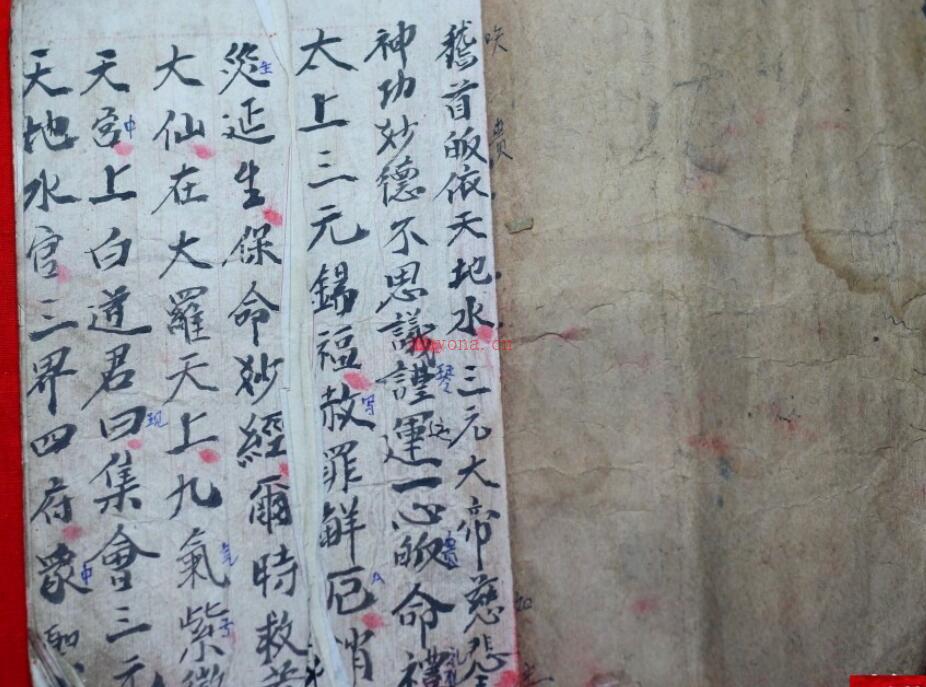 嵇首皈依天地水三元大帝慈悲
神功妙德不思議謹運一心皈命禮
太上三元錫福赦罪觧厄消
災延生保命妙經爾時救苦
大仙在大羅天上九氣紫微
天宮上白道君曰集會三元
天地水官三界四府衆聖